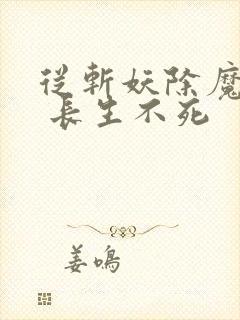 從斬妖除魔
長生不死
姜鳴